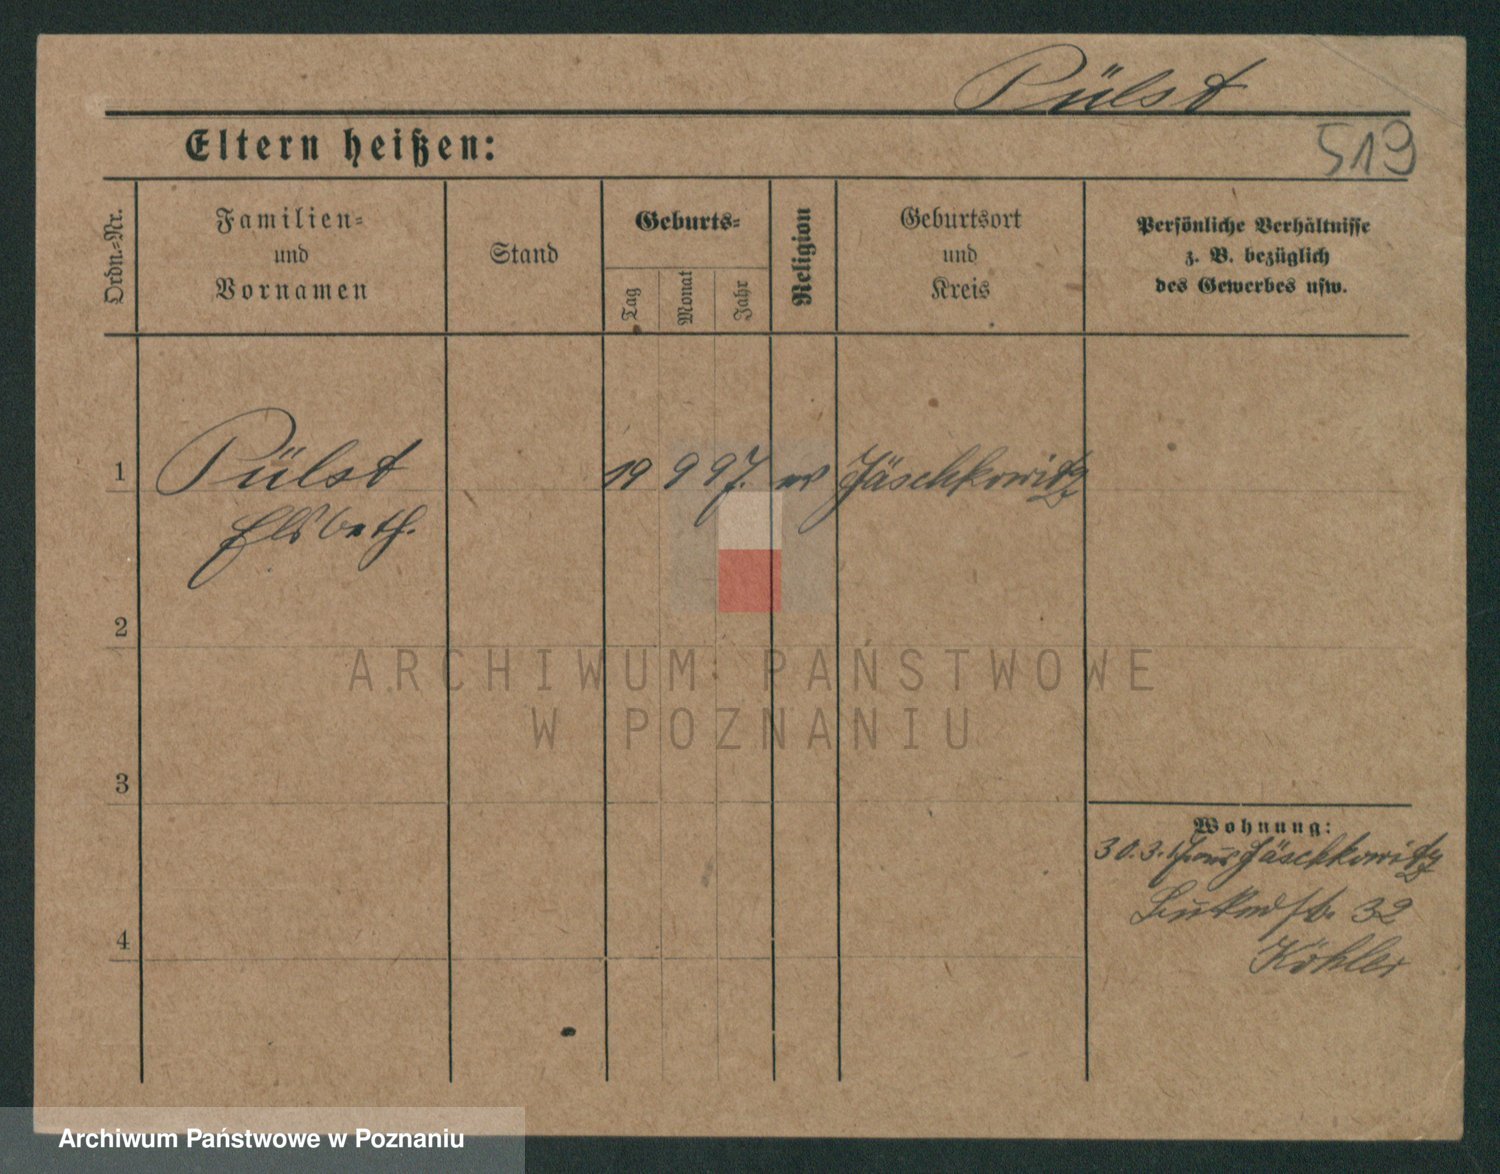 Pülst
519
Eltern heißen:
Ordn.-Nr.
Familien-
und
Vornamen
Stand
Geburts-
Tag
Monat
Jahr
Religion
Geburtsort
und
Kreis
Persönliche Verhältnisse
z. B. bezüglich
des Gewerbes usw.
1 Pülst 19 9 97. ev Jäschkowitz
Elsbeth.
2
3
4
Wohnung:
30.3. aus Jäschkowitz
32
Köhler
ARCHIWUM PAŃSTWOWE
W POZNANIU
Archiwum Państwowe w Poznaniu